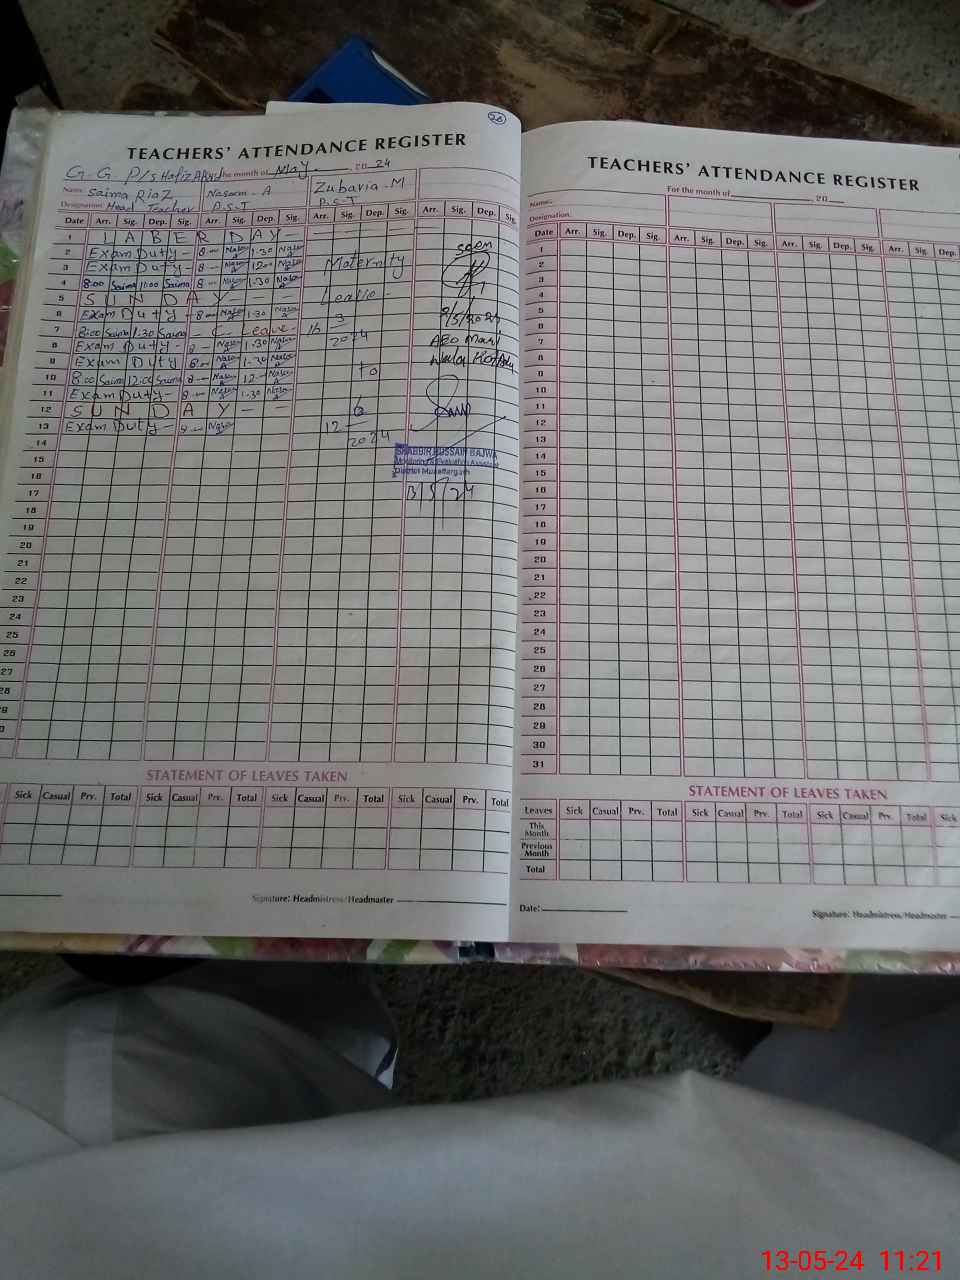 28
TEACHERS' ATTENDANCE REGISTER
G.G. P/S Hafiz Abad For the month of May 20 24
Name. Saima Riaz Naseem - A Zubaria - M
Designation. Head Teacher P.S.T P.S.T
Date Arr. Sig. Dep. Sig. Arr. Sig. Dep. Sig. Arr. Sig. Dep. Sig. Arr. Sig. Dep. Sig.
1 LABER DAY -
2 Exam Duty - 8 1.30
3 Exam Duty - 8 1200 Maternity
4 8:00 Saima 11:00 Saima 8 1.30
5 SUNDAY - - Leave -
6 Exam Duty - 8 1.30
7 8:00 Saima 1:30 Saima - C. Leave - 16 3 2024
8 Exam Duty - 8 1.30
9 Exam Duty 8 1.30 to
10 8:00 Saima 12:00 Saima 8 12
11 Exam Duty - 8 1.30
12 SUNDAY - - 12 6 2024
13 Exam Duty - 8
14
15
16
17
18
19
20
21
22
23
24
25
26
27
28
29
30
Seen
9/5/2024
AEO
SHABBIR HUSSAIN BAJWA
Monitoring & Evaluation Assistant
District Muzaffargarh
13/5/24
STATEMENT OF LEAVES TAKEN
Sick Casual Prv. Total Sick Casual Prv. Total Sick Casual Prv. Total Sick Casual Prv. Total
Signature: Headmistress/Headmaster
TEACHERS' ATTENDANCE REGISTER
For the month of 20
Name.
Designation.
Date Arr. Sig. Dep. Sig. Arr. Sig. Dep. Sig. Arr. Sig. Dep. Sig. Arr. Sig. Dep.
1
2
3
4
5
6
7
8
9
10
11
12
13
14
15
16
17
18
19
20
21
22
23
24
25
26
27
28
29
30
31
STATEMENT OF LEAVES TAKEN
Leaves Sick Casual Prv. Total Sick Casual Prv. Total Sick Casual Prv. Total Sick
This Month
Previous Month
Total
Date:
Signature: Headmistress/Headmaster
13-05-24 11:21